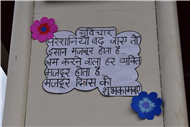 सुविचार
परेशानियां बढ़ जाए तो
इंसान मजबूर होता है
श्रम करने वाला हर व्यक्ति
मजदूर होता है
मजदूर दिवस की
शुभकामनाएं